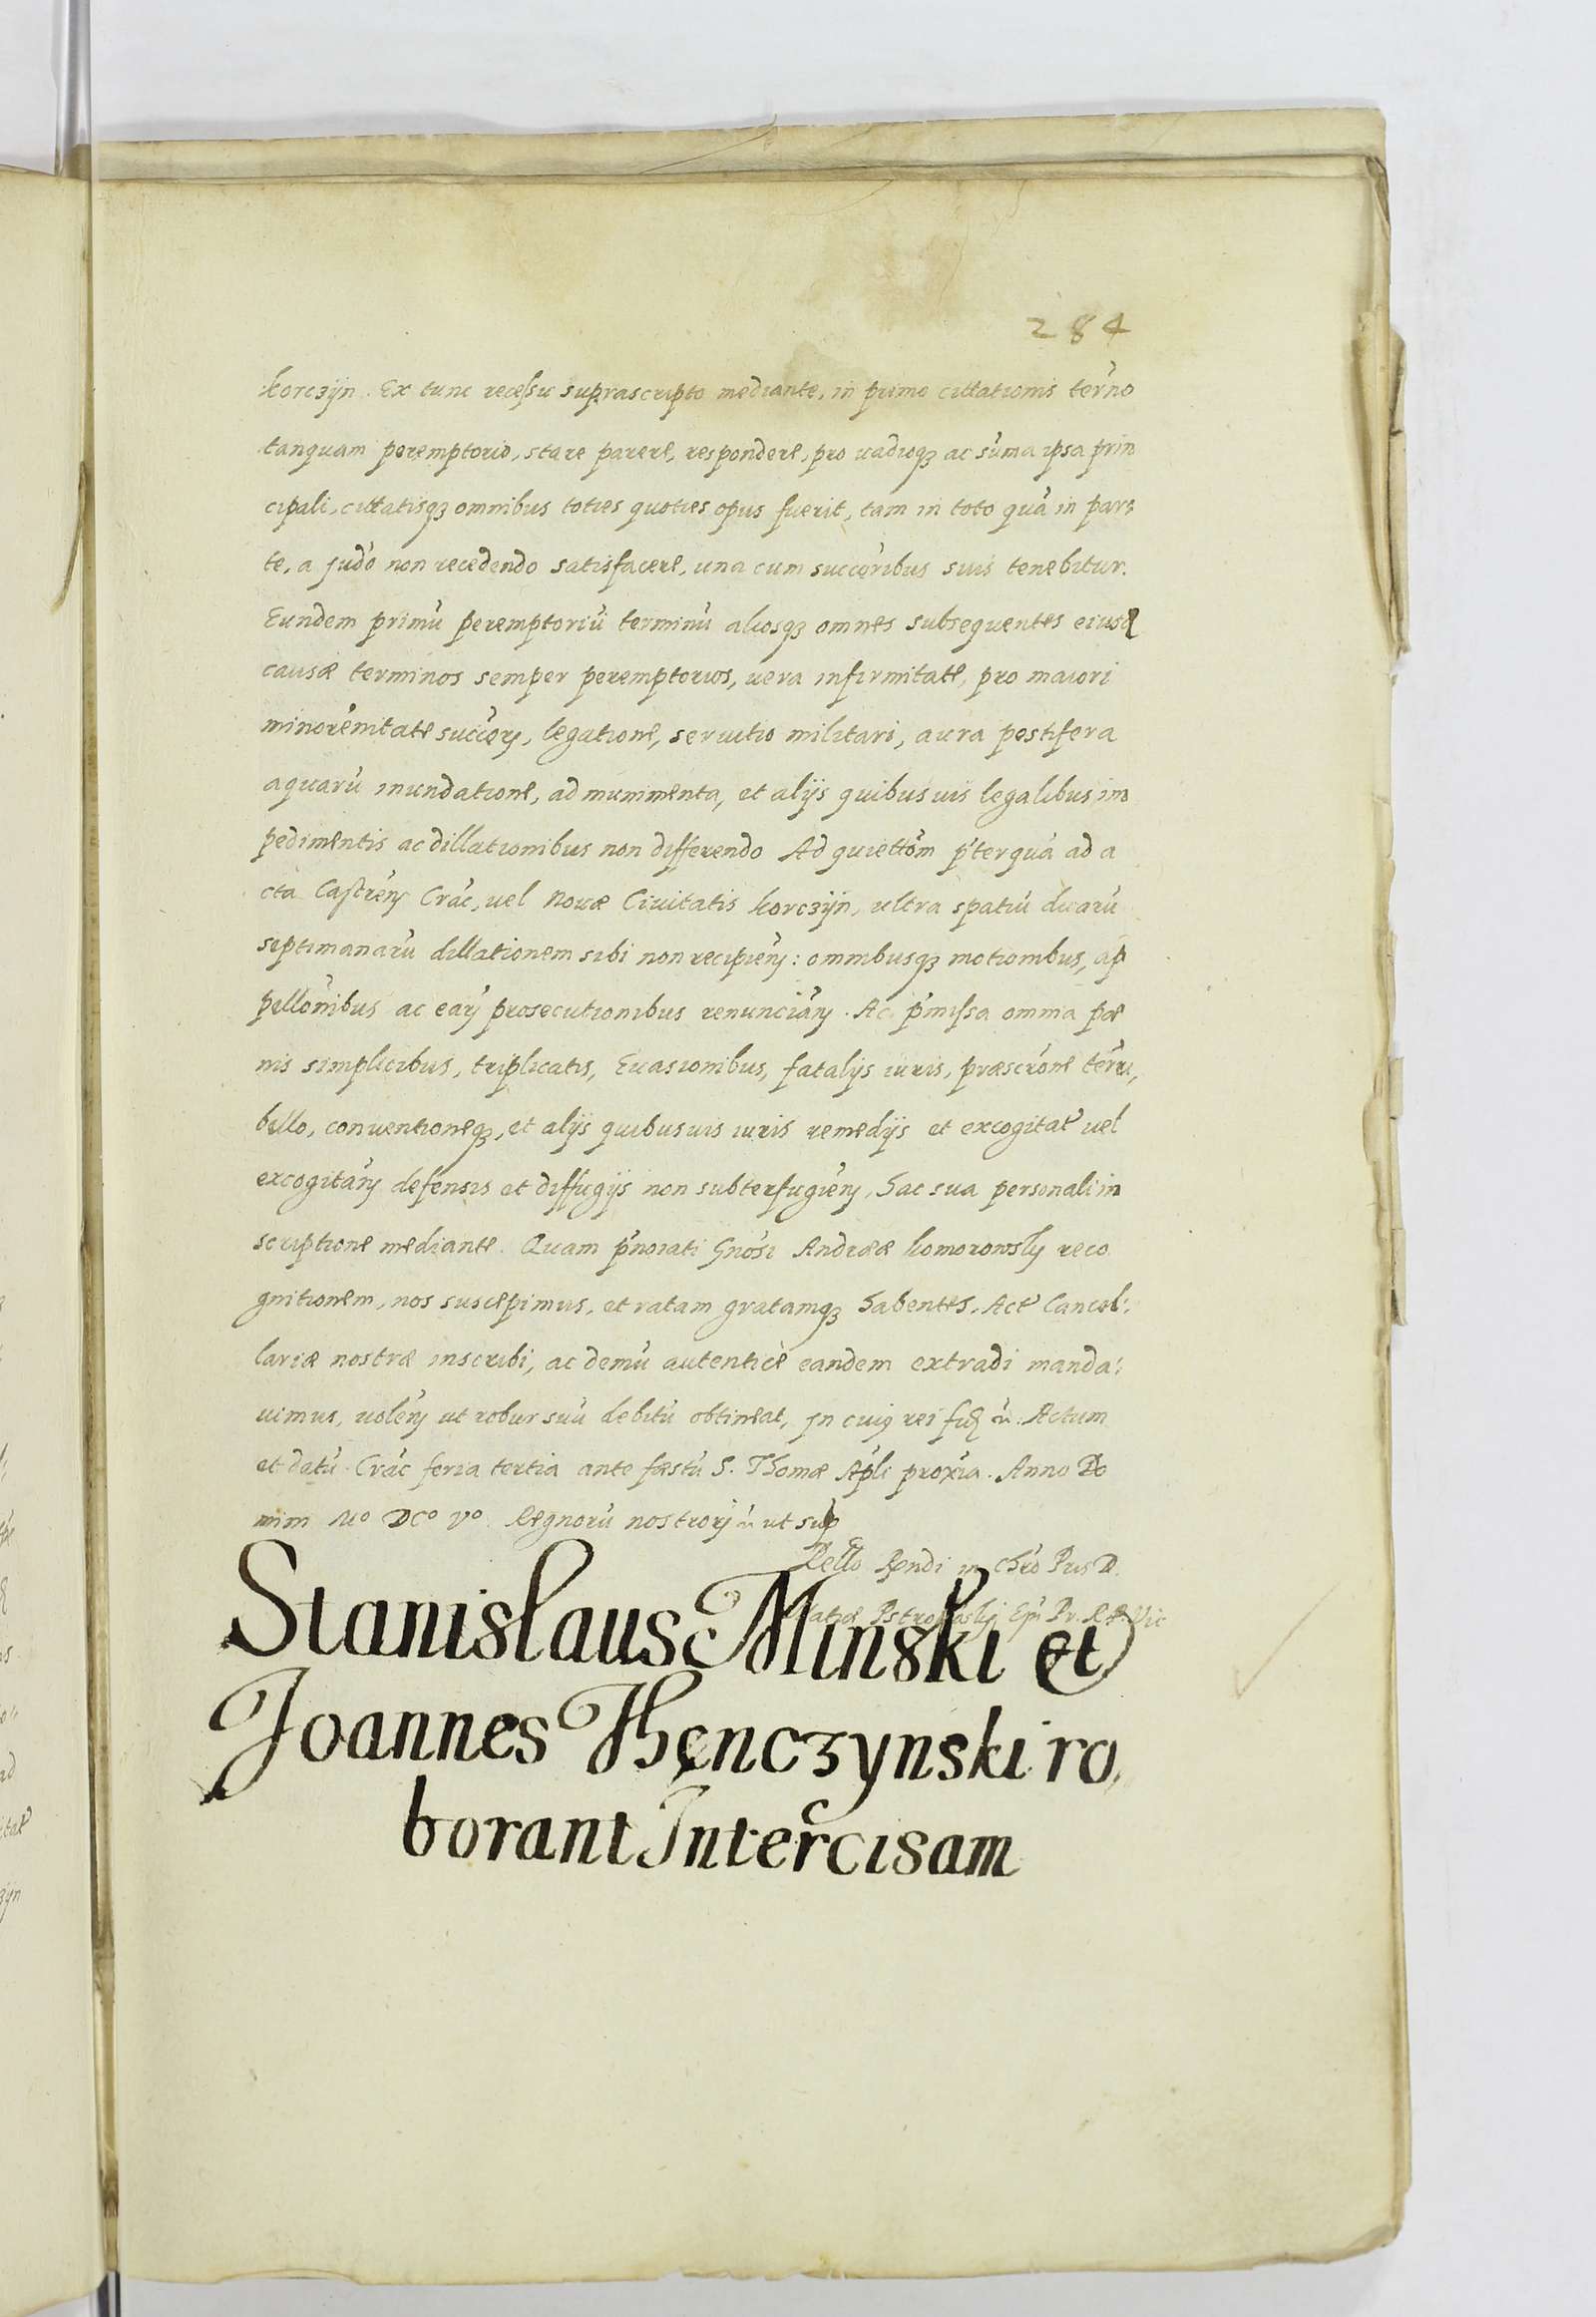 284
korczÿn. Ex tunc recessu suprascripto mediante, in primo cittationis ter̃no
tanquam peremptorio, stare parere, respondere, pro vadioq₃ ac sũma ipsa prin
cipali, cittatisq₃ omnibus toties quoties opus fuerit, tam in toto quã in par₌
te, a judõ non recedendo satisfacere, una cum succõribus suis tenebitur.
Eundem primũ peremptoriũ terminũ aliosq₃ omnes subsequentes eiusd
causæ terminos semper peremptorios, vera infirmitate, pro maiori
minorẽnitate succõrũ, legatione, servitio militari, aura pestifera
aquarũ inundatione, ad munimenta, et alÿs quibusvis legalibus im
pedimentis ac dillationibus non differendo Ad quiettõm p̃terquã ad a
cta Castrẽn Crac̃, vel Novæ Civitatis korczÿn, ultra spatiũ duarũ
septimanarũ dillationem sibi non recipien̄: omnibusq₃ motionibus, ap
pellõnibus ac earũ prosecutionibus renuncian̄. Ac p̃missa omnia pæ
nis simplicibus, triplicatis, Evasionibus, fatalÿs iuris, præscrõne ter̃ri,
bello, conventioneq₃, et alÿs quibusvis iuris remedÿs et excogitat̃ vel
excogitan̄ defensis et diffugÿs non subterfugien̄, hac sua personali in
scriptione mediante. Quam p̃noiati Gnõsi Andreæ komorowskÿ reco
gnitionem, nos suscepimus, et ratam gratamq₃ habentes. Act̃ Cancel:
lariæ nostræ inscribi, ac demũ autenticè eandem extradi manda:
vimus, volen̄ ut robur suũ debitũ obtineat, Jn cui9 rei fid̃ &. Actum
et datũ Crac̃ feria tertia ante fæstũ S. Thomæ Ap̃li prox̃ia. Anno Do
mini Mo DCo Vo Regnorũ nostrorũ & ut sup̃
Rello Rendi in Chr̃o Pris D.
Stanislaus Minski et
Joannes Thęnczynski ro,
borant Intercisam